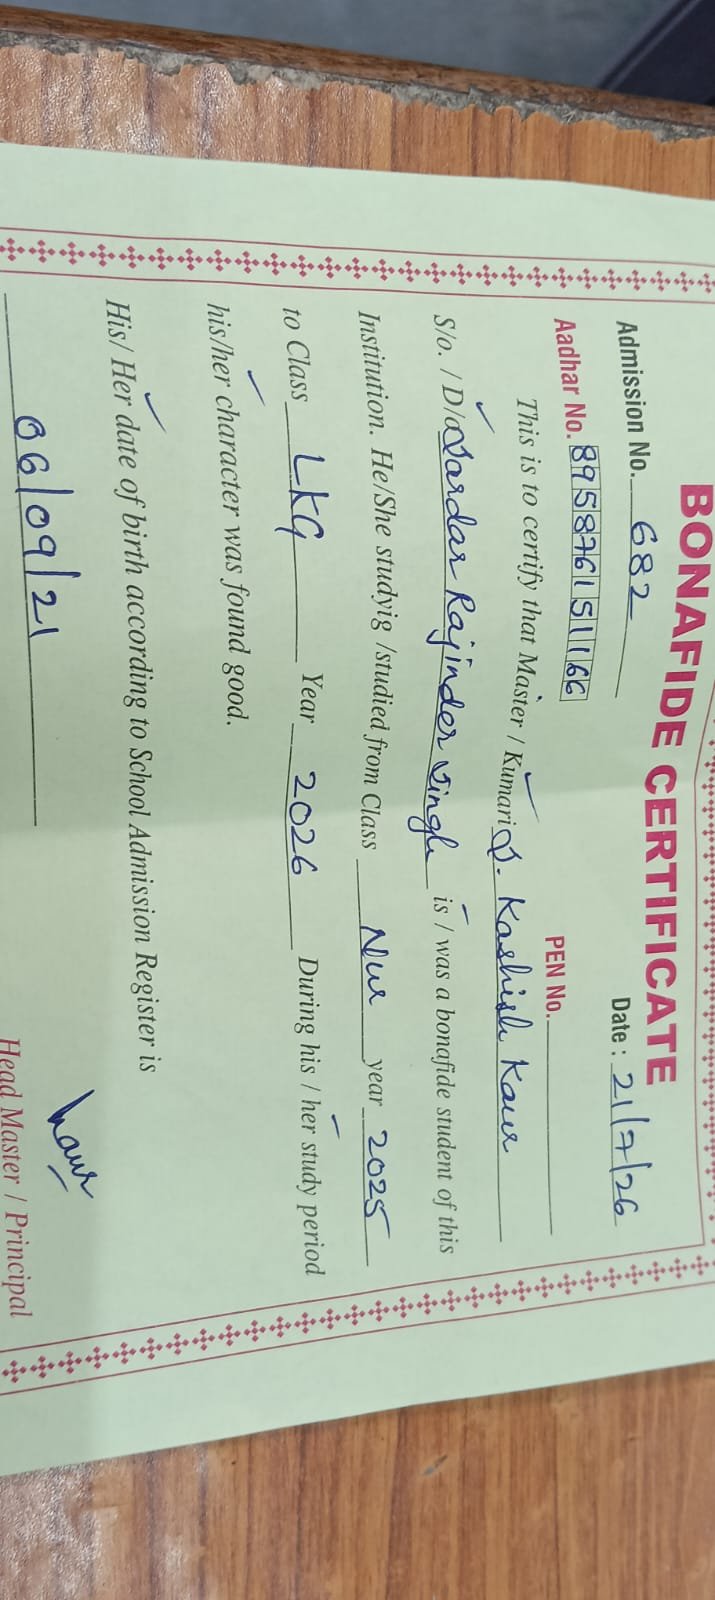 BONAFIDE CERTIFICATE
Admission No. 682 Date : 21/7/26
Aadhar No. 895876151166 PEN No.
This is to certify that Master / Kumari S. Kashish Kaur
S/o. / D/o Sardar Rajinder Singh is / was a bonafide student of this
Institution. He/She studyig /studied from Class Nur year 2025
to Class LKG Year 2026 During his / her study period
his/her character was found good.
His/ Her date of birth according to School Admission Register is
06/09/21
Head Master / Principal